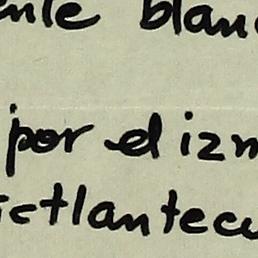 ente blan
por el izn
ictlantecu